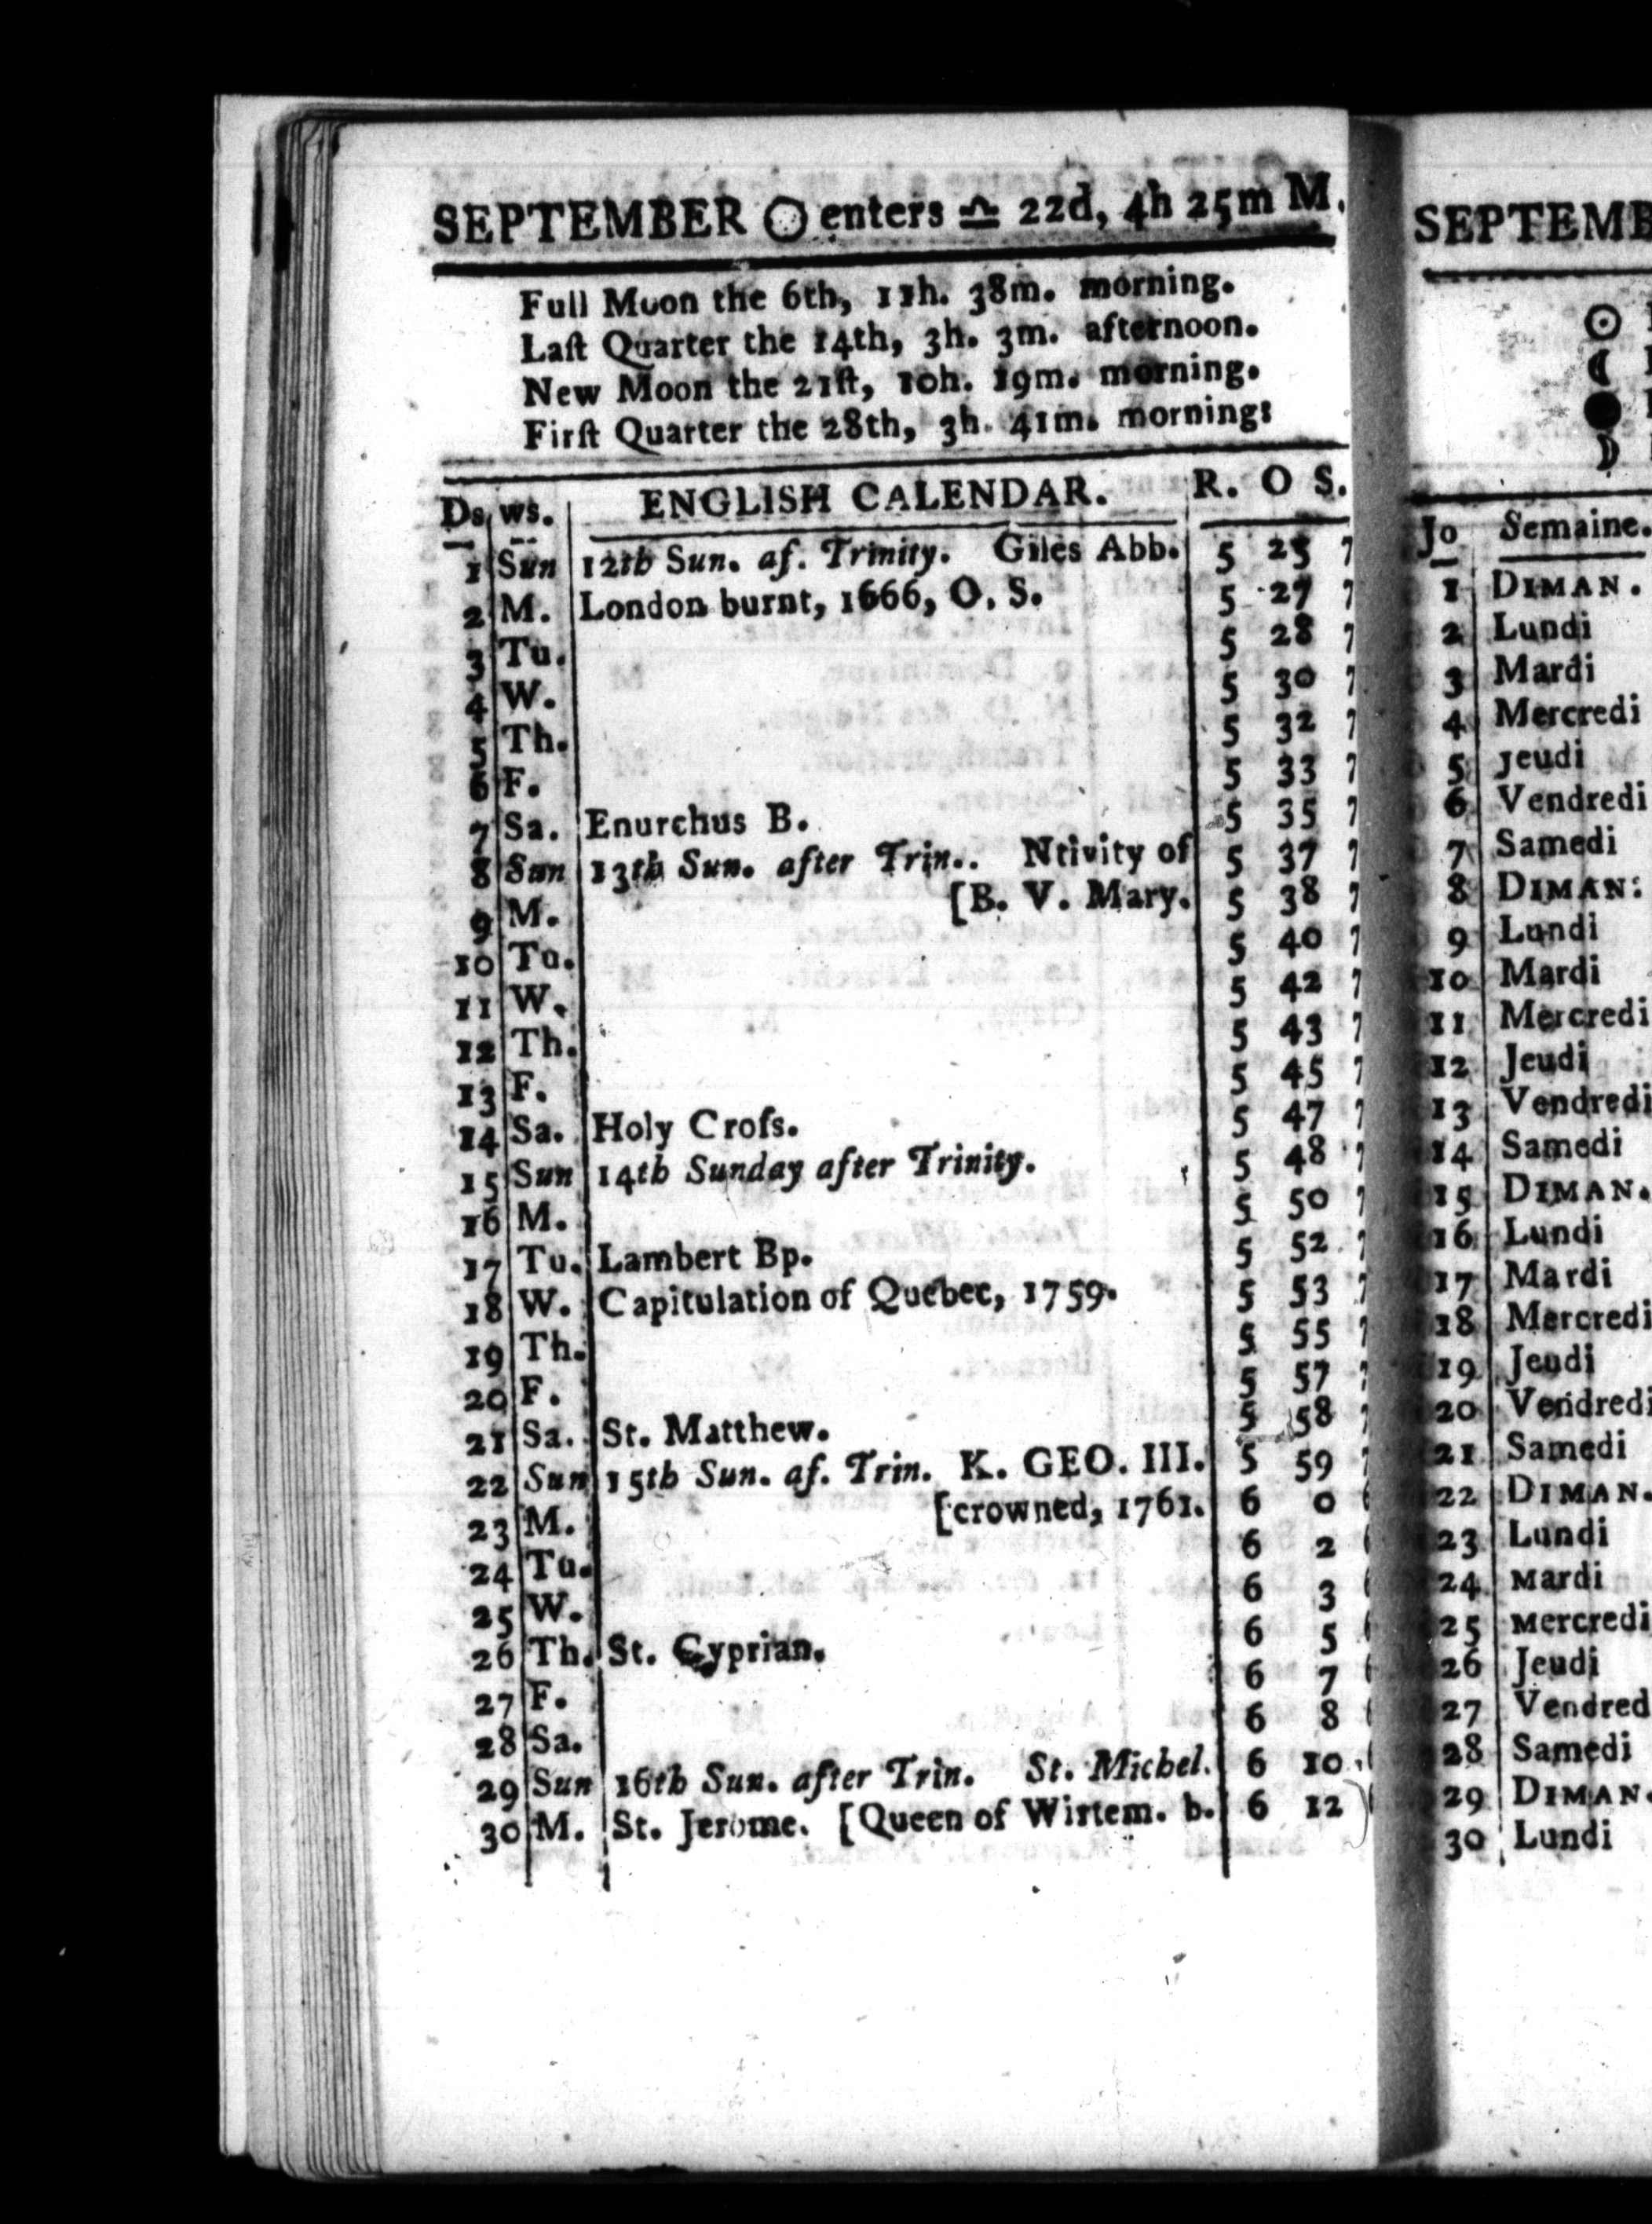 SEPTEMBER ☉ enters ♎ 22d, 4h 25m M.
Full Moon the 6th, 11h. 38m. morning.
Laſt Quarter the 14th, 3h. 3m. afternoon.
New Moon the 21ſt, 10h. 19m. morning.
Firſt Quarter the 28th, 3h. 41m. morning:
Ds ws. ENGLISH CALENDAR. R. O S.
1 Sun 12th Sun. af. Trinity. Giles Abb. 5 25 7
2 M. London burnt, 1666, O. S. 5 27 7
3 Tu. 5 28 7
4 W. 5 30 7
5 Th. 5 32 7
6 F. 5 33 7
7 Sa. Enurchus B. 5 35 7
8 Sun 13th Sun. after Trin.. Ntivity of 5 37 7
9 M. [B. V. Mary. 5 38 7
10 Tu. 5 40 7
11 W. 5 42 7
12 Th. 5 43 7
13 F. 5 45 7
14 Sa. Holy Croſs. 5 47 7
15 Sun 14th Sunday after Trinity. 5 48 7
16 M. 5 50 7
17 Tu. Lambert Bp. 5 52 7
18 W. Capitulation of Quebec, 1759. 5 53 7
19 Th. 5 55 7
20 F. 5 57 7
21 Sa. St. Matthew. 5 58 7
22 Sun 15th Sun. af. Trin. K. GEO. III. 5 59 7
23 M. [crowned, 1761. 6 0
24 Tu. 6 2
25 W. 6 3
26 Th. St. Cyprian. 6 5
27 F. 6 7
28 Sa. 6 8
29 Sun 16th Sun. after Trin. St. Michel. 6 10
30 M. St. Jerome. [Queen of Wirtem. b. 6 12
SEPTEMB
☉
☾
●
☽
Jo Semaine.
1 DIMAN.
2 Lundi
3 Mardi
4 Mercredi
5 jeudi
6 Vendredi
7 Samedi
8 DIMAN:
9 Lundi
10 Mardi
11 Mercredi
12 Jeudi
13 Vendredi
14 Samedi
15 DIMAN.
16 Lundi
17 Mardi
18 Mercredi
19 Jeudi
20 Vendredi
21 Samedi
22 DIMAN.
23 Lundi
24 Mardi
25 Mercredi
26 Jeudi
27 Vendred
28 Samedi
29 DIMAN.
30 Lundi